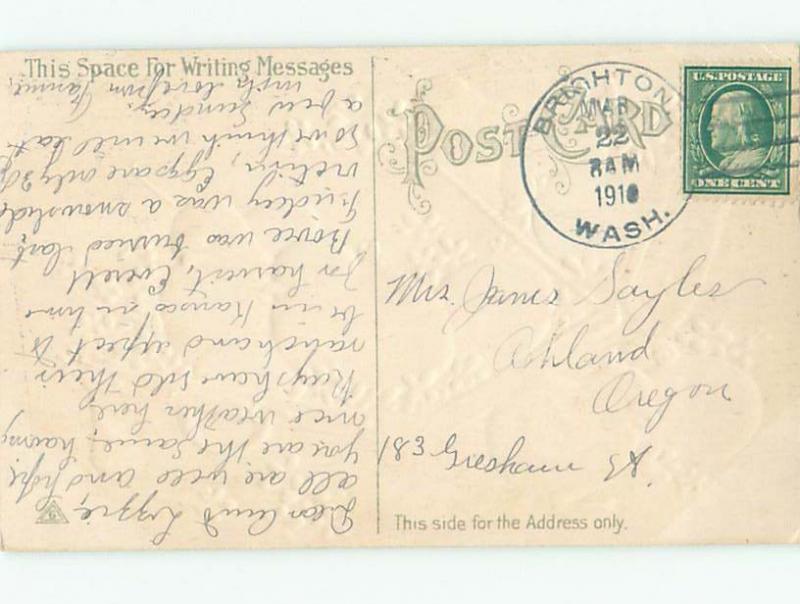 This Space for Writing Messages
Dear Aunt Lizzie,
all are well and hope
you are the same, having
nice weather here
Rayshaw sold their
ranch and expect to
be in Kansas in time
for harvest, Everett
Bowe was buried last
Friday was a snowslide
victim, Eggs are only 20¢
so we think we will eat
a few Sunday.
with love from Fannie.
POST CARD
BRIGHTON
MAR
22
8 AM
1910
WASH.
U.S. POSTAGE
ONE CENT
Mrs. James Sayles
Ashland
Oregon
183 Gresham St.
This side for the Address only.